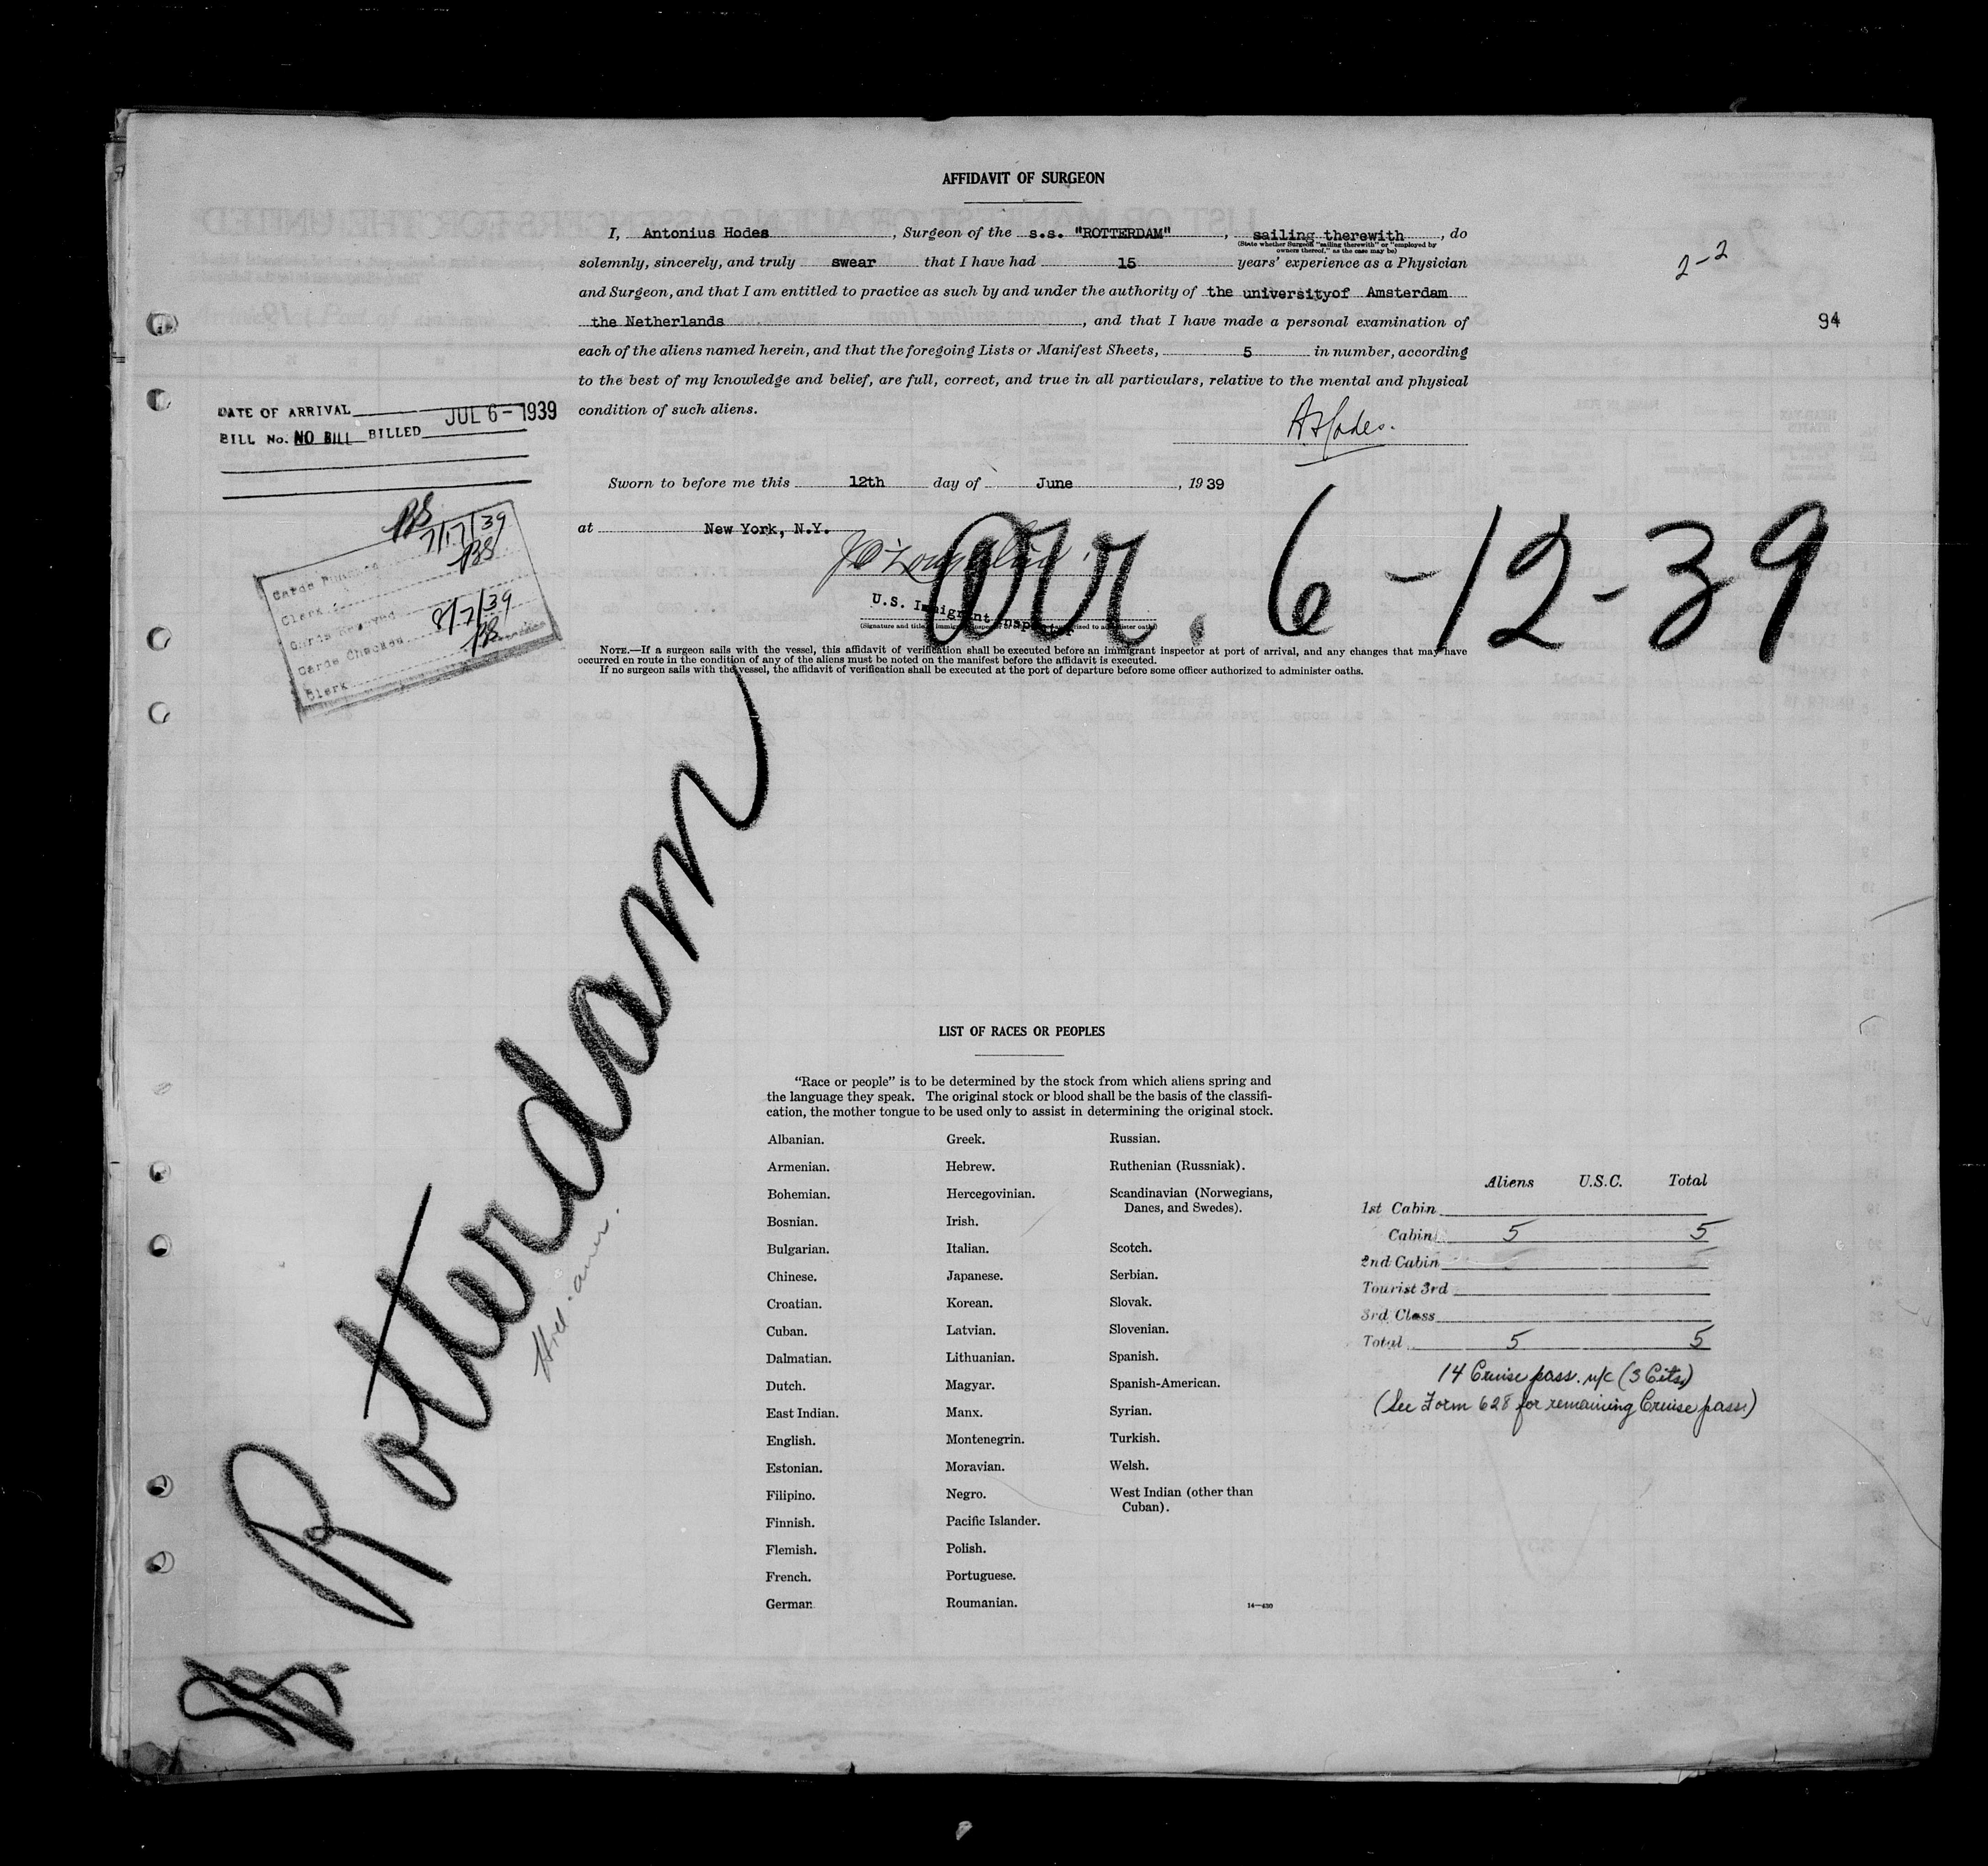 AFFIDAVIT OF SURGEON
I, Antonius Hodes, Surgeon of the s.s. "ROTTERDAM", sailing therewith, do
(State whether Surgeon "sailing therewith" or "employed by
owners thereof," as the case may be)
solemnly, sincerely, and truly swear that I have had 15 years' experience as a Physician
and Surgeon, and that I am entitled to practice as such by and under the authority of the universityof Amsterdam
the Netherlands, and that I have made a personal examination of
each of the aliens named herein, and that the foregoing Lists or Manifest Sheets, 5 in number, according
to the best of my knowledge and belief, are full, correct, and true in all particulars, relative to the mental and physical
condition of such aliens.
2-2
94
A Hodes.
DATE OF ARRIVAL JUL 6-1939
BILL No. NO BILL BILLED
Sworn to before me this 12th day of June, 1939
at New York, N.Y.
arr. 6-12-39
U.S. Immigrant Inspector
BS
7/17/39
Cards Punched
BS
Clerk
Cards Removed 8/7/39
Cards Checked BS
Clerk
NOTE.—If a surgeon sails with the vessel, this affidavit of verification shall be executed before an immigrant inspector at port of arrival, and any changes that may have
occurred en route in the condition of any of the aliens must be noted on the manifest before the affidavit is executed.
If no surgeon sails with the vessel, the affidavit of verification shall be executed at the port of departure before some officer authorized to administer oaths.
Rotterdam
LIST OF RACES OR PEOPLES
"Race or people" is to be determined by the stock from which aliens spring and
the language they speak. The original stock or blood shall be the basis of the classifi-
cation, the mother tongue to be used only to assist in determining the original stock.
Albanian.
Armenian.
Bohemian.
Bosnian.
Bulgarian.
Chinese.
Croatian.
Cuban.
Dalmatian.
Dutch.
East Indian.
English.
Estonian.
Filipino.
Finnish.
Flemish.
French.
German
Greek.
Hebrew.
Hercegovinian.
Irish.
Italian.
Japanese.
Korean.
Latvian.
Lithuanian.
Magyar.
Manx.
Montenegrin.
Moravian.
Negro.
Pacific Islander.
Polish.
Portuguese.
Roumanian.
Russian.
Ruthenian (Russniak).
Scandinavian (Norwegians,
Danes, and Swedes).
Scotch.
Serbian.
Slovak.
Slovenian.
Spanish.
Spanish-American.
Syrian.
Turkish.
Welsh.
West Indian (other than
Cuban).
14—430
Aliens U.S.C. Total
1st Cabin
Cabin 5 5
2nd Cabin
Tourist 3rd
3rd Class
Total 5 5
14 Cruise pass. n/c (3 Cits.)
(See Form 628 for remaining Cruise pass.)